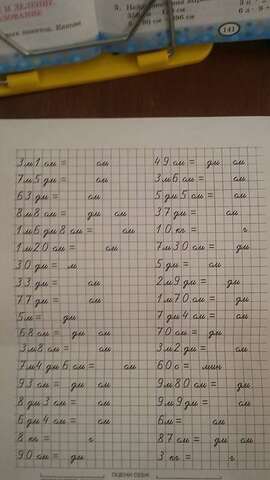 И ДЕЛЕНИЕ.
141
3м1см = см
7м5дм = см
63дм = см
8м8см = дм см
1м6дм8см = см
1м20см = см
30дм = м
33дм = см
77дм = см
5м = дм
68см = дм см
3м8см = см
7м4дм6см = см
93см = дм см
8дм3см = см
6дм4см = см
8кг = г
90см = дм
49см = дм см
3м6см = см
5дм5см = см
37дм = см
10кг = г
7м30см = дм
5дм = см
2м9дм = дм
1м70см = дм
7дм4см = см
70см = дм
3м2дм = см
60с = мин
9м80см = дм
9м9дм = см
6м = см
87дм = дм см
3кг = г
ОЦЕНИ СЕБЯ: